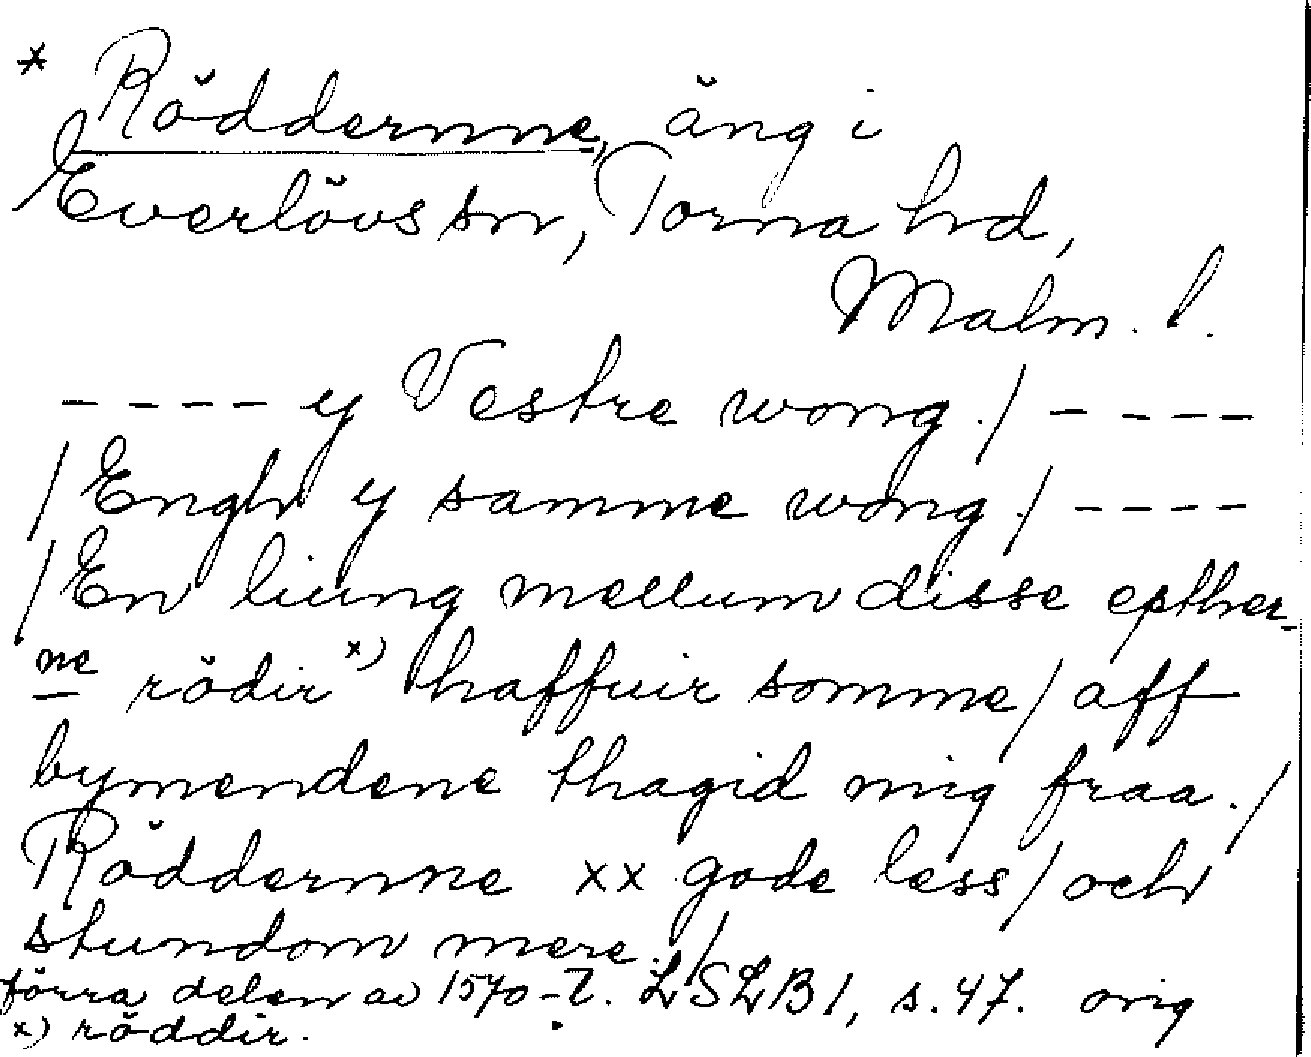 * Röddernne, äng i
Everlövs sn, Torna hd,
Malm. l.
---- y Vestre wong./ ----
/Engh y samme wong./ ----
/En liung mellum disse epther-
ne rödir x) haffuir somme/ aff
bymendene thagid mig fraa./
Röddernne xx gode less/ och
stundom mere./
förra delen av 1570-t. LSLB1, s. 47. orig
x) röddir.